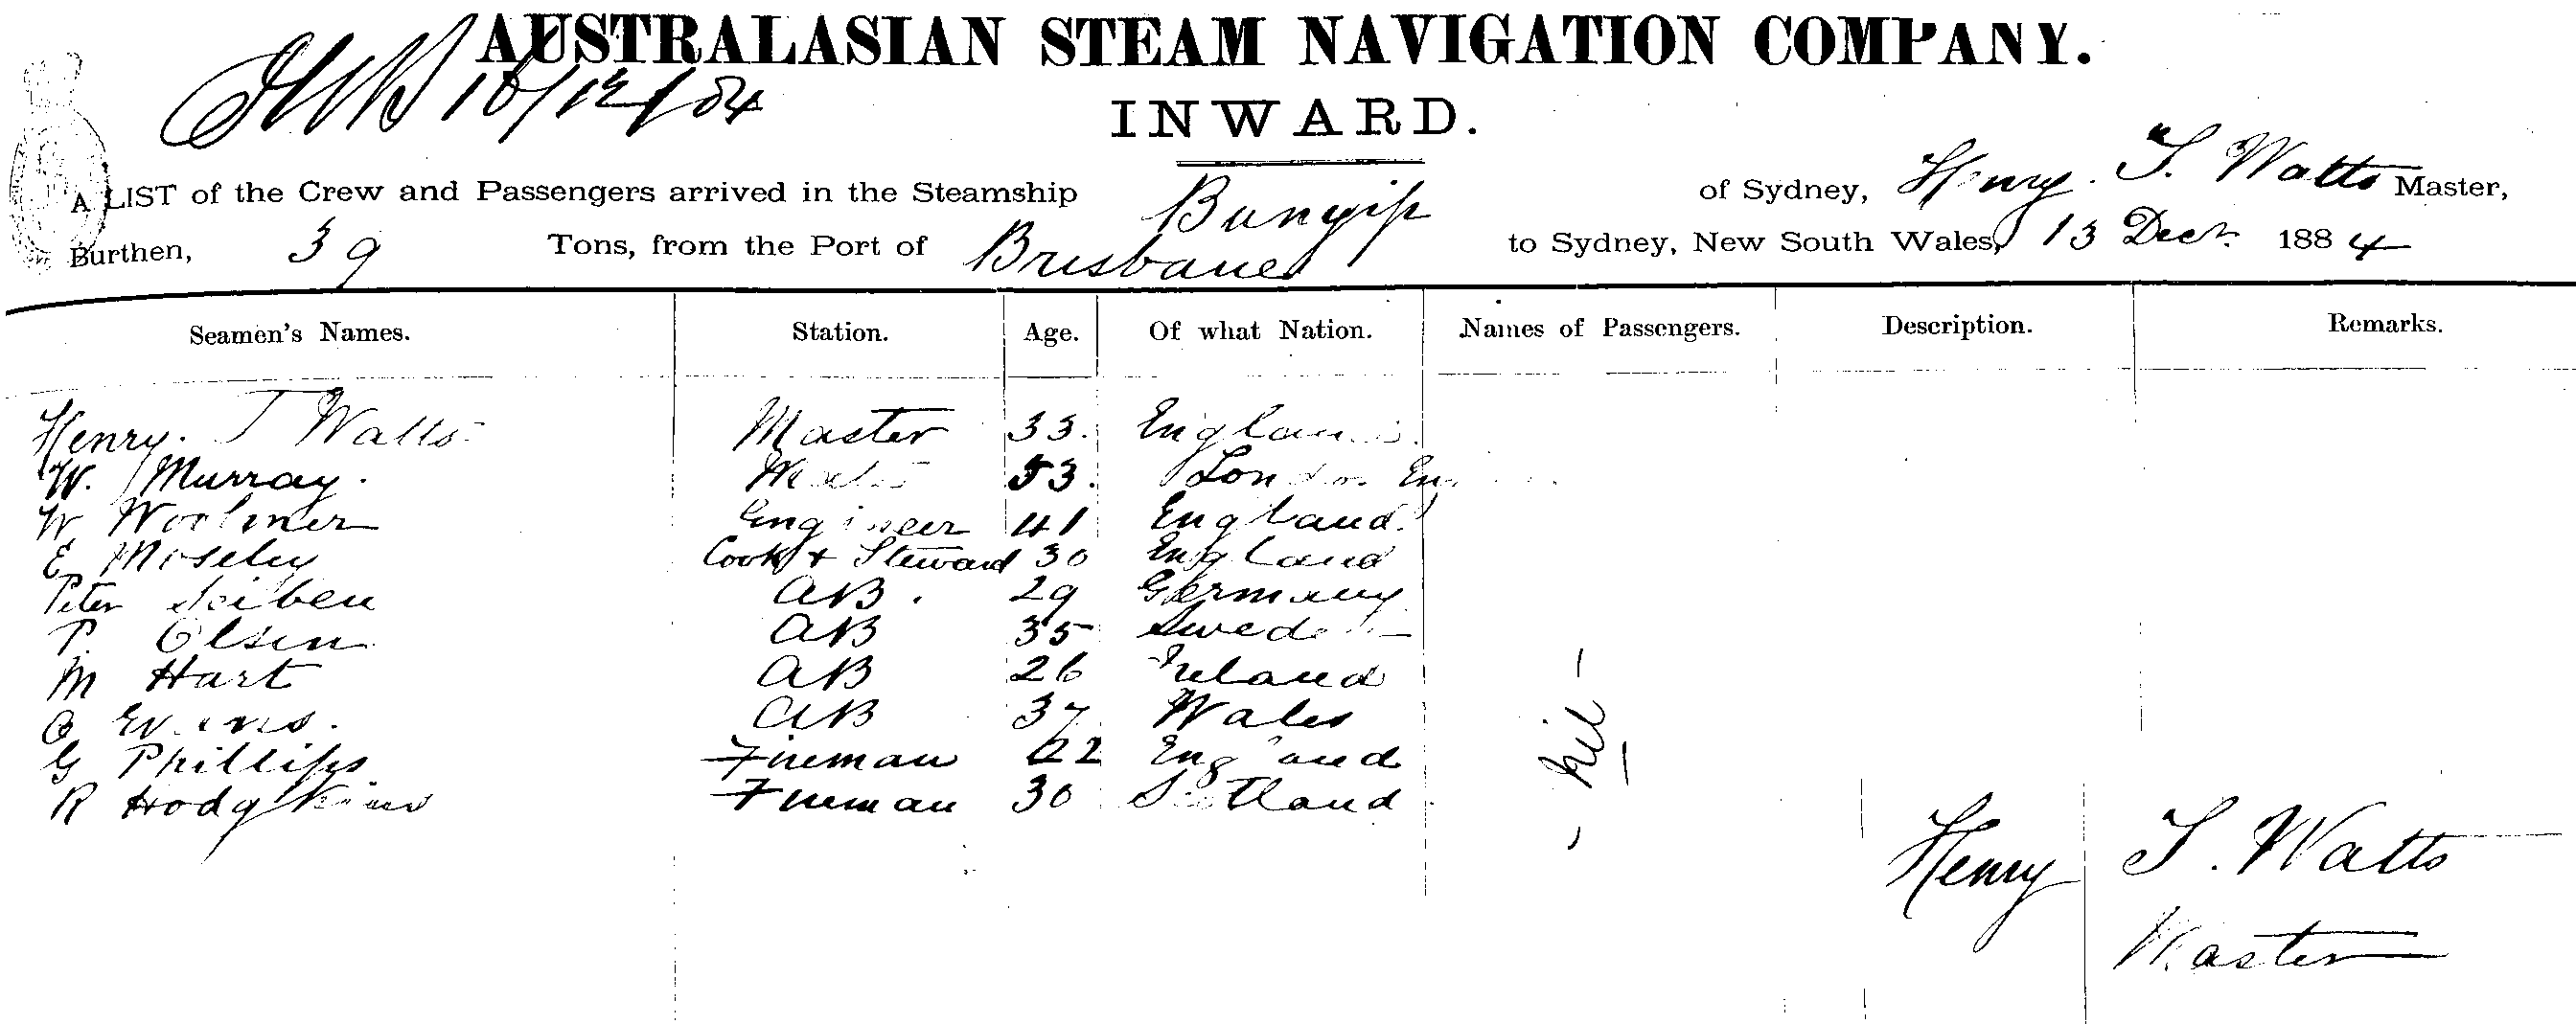 AUSTRALASIAN STEAM NAVIGATION COMPANY.
16/12/84
INWARD.
A LIST of the Crew and Passengers arrived in the Steamship Bunyip of Sydney, Henry T. Watts Master,
Burthen, 39 Tons, from the Port of Brisbane to Sydney, New South Wales, 13 Decr. 1884
Seamen's Names. Station. Age. Of what Nation. Names of Passengers. Description. Remarks.
Henry. T Watts Master 33. England.
W. Murray. Mate 53. London En
W Woolmer Engineer 41 England.
E Moseley Cook & Steward 30 England
Peter AB. 29 Germany
P. Olsen AB 35 Sweden
M Hart AB 26 Ireland
O Evans. AB 37 Wales
G Phillips Fireman 22 England
R Hodgkins Fireman 30 Scotland
- nil -
Henry T. Watts
Master